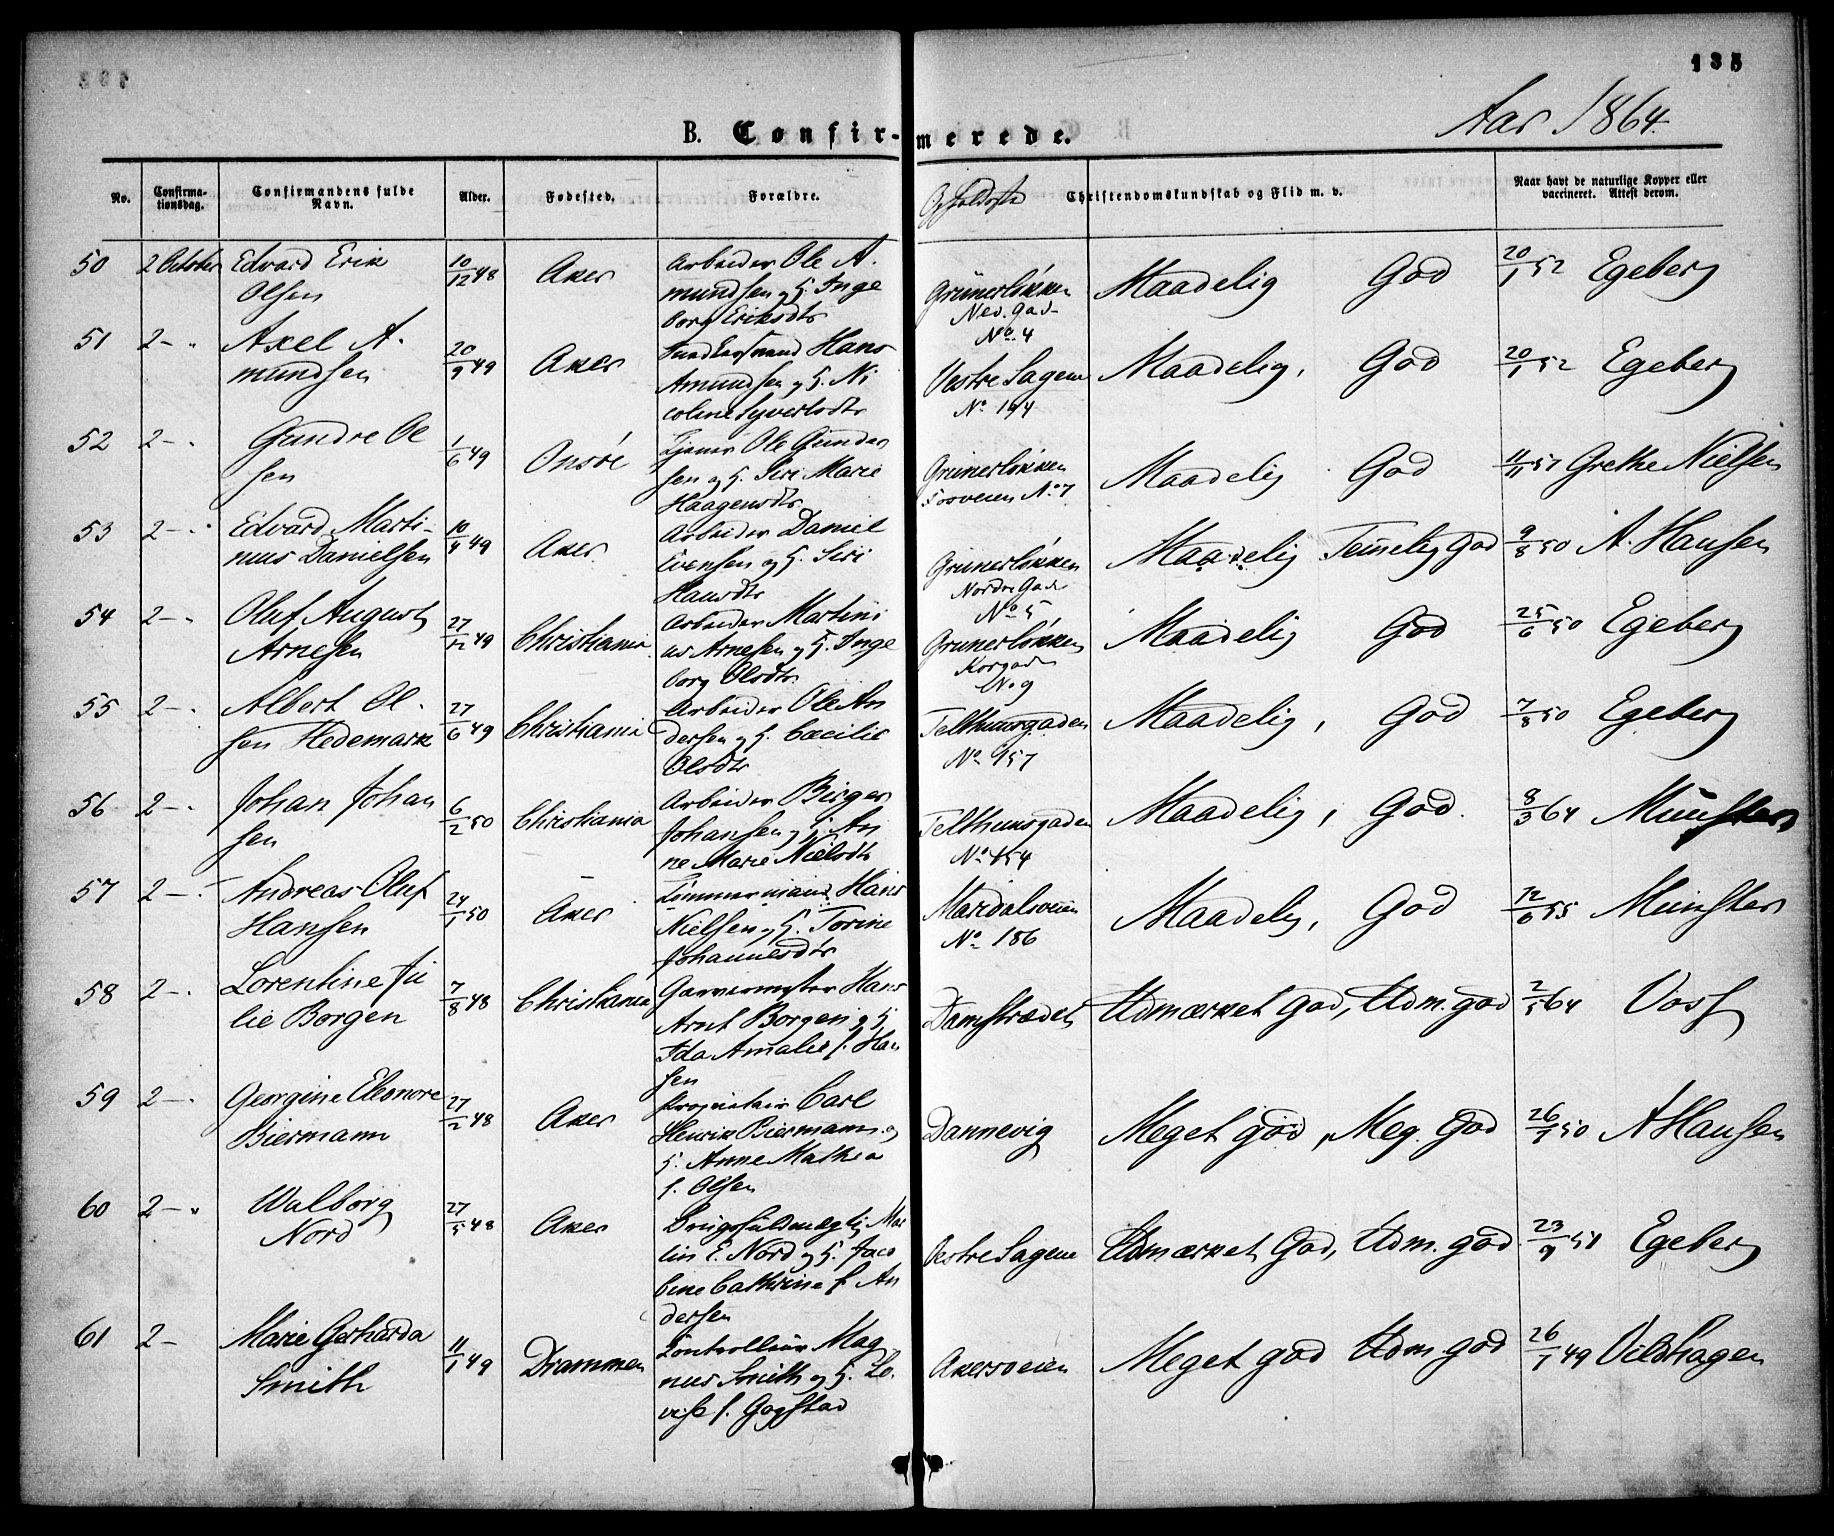 135
Aar 1864.
B. Confirmerede.
No. | Confirmationsdag. | Confirmandens fulde Navn. | Alder. | Fødested. | Forældre. | Opholdsste | Christendomskundskab og Flid m. v. | Naar havt de naturlige Kopper eller vaccineret. Attest derom.
50 | 2 October | Edvard Erik Olsen | 10/12 48 | Aker | Arbeider Ole Amundsen og H. Ingeborg Eriksdtr | Grünerløkken Ned. Gad. No. 4 | Maadelig God | 20/1 52 Egeberg
51 | 2 - " | Axel Amundsen | 20/9 49 | Aker | Hans Amundsen og H. Nicoline Syverts dtr | Vestre Sagene No 194 | Maadelig, God | 20/1 52 Egeberg
52 | 2 - . | Gundre Olsen | 1/6 49 | Onsöe | Tjener Ole Gundersen og H. Siri Marie Haagensdtr | Grünerløkken Fosveien No 7 | Maadelig God | 11/11 57 Grethe Nielsen
53 | 2 - . | Edvard Martinus Danielsen | 10/4 49 | Aker | Arbeider Daniel Evensen og H. Siri Hansdtr | Grünerløkken Nordre Gade No 5 | Maadelig Temelig God | 9/8 50 A. Hansen
54 | 2 - . | Oluf August Arnesen | 27/12 49 | Christiania | Arbeider Martinius Arnesen og H. Ingeborg Olsdtr. | Grunerløkken Korsgaden No 9 | Maadelig God | 25/6 50 Egeberg
55 | 2 - . | Albert Olsen Hedemark | 27/6 49 | Christiania | Arbeider Ole Andersen og H. Cæcilie Olsdtr | Telthuusgaden No 457 | Maadelig, God | 7/8 50 Egeberg
56 | 2 - . | Johan Johansen | 6/2 50 | Christiania | Arbeider Birger Johansen og H. Anne Marie Nielsdtr | Telthuusgaden No 454 | Maadelig, God. | 8/3 64 Münster
57 | 2 - | Andreas Oluf Hansen | 24/1 50 | Aker | Tømmermand Hans Nielsen og H. Torine Johannesdtr | Maridalsveien No 186 | Maadelig, God | 12/6 55 Münster
58 | 2 - . | Lorentine Julie Borgen | 7/8 48 | Christiania | Garvermster Hans Arnt Borgen og H. Ida Amalie f. Hansen | Damstrædet | Udmærket God, Udm. god | 2/5 64 Voss
59 | 2 - . | Georgine Eleonore Biermann | 27/2 48 | Aker | Proprietair Carl Henrik Biermann og H. Anne Mathea f. Olsen | Dannevig | Meget god, Meg. God | 26/7 50 A Hansen
60 | 2 - " | Walborg Nord | 27/5 48 | Aker | Brugsfuldmægtig E. Nord og H. Jacobine Cathrine f. Andersen | Vestre Sagene | Udmærket God, Udm. god | 23/9 51 Egeberg
61 | 2 - | Marie Gerharda Smith | 11/1 49 | Drammen | Controlleur Magnus Smith og H. Lovise f. Gogstad | Akersveien | Meget god Udm. god | 26/7 49 Vildhagen